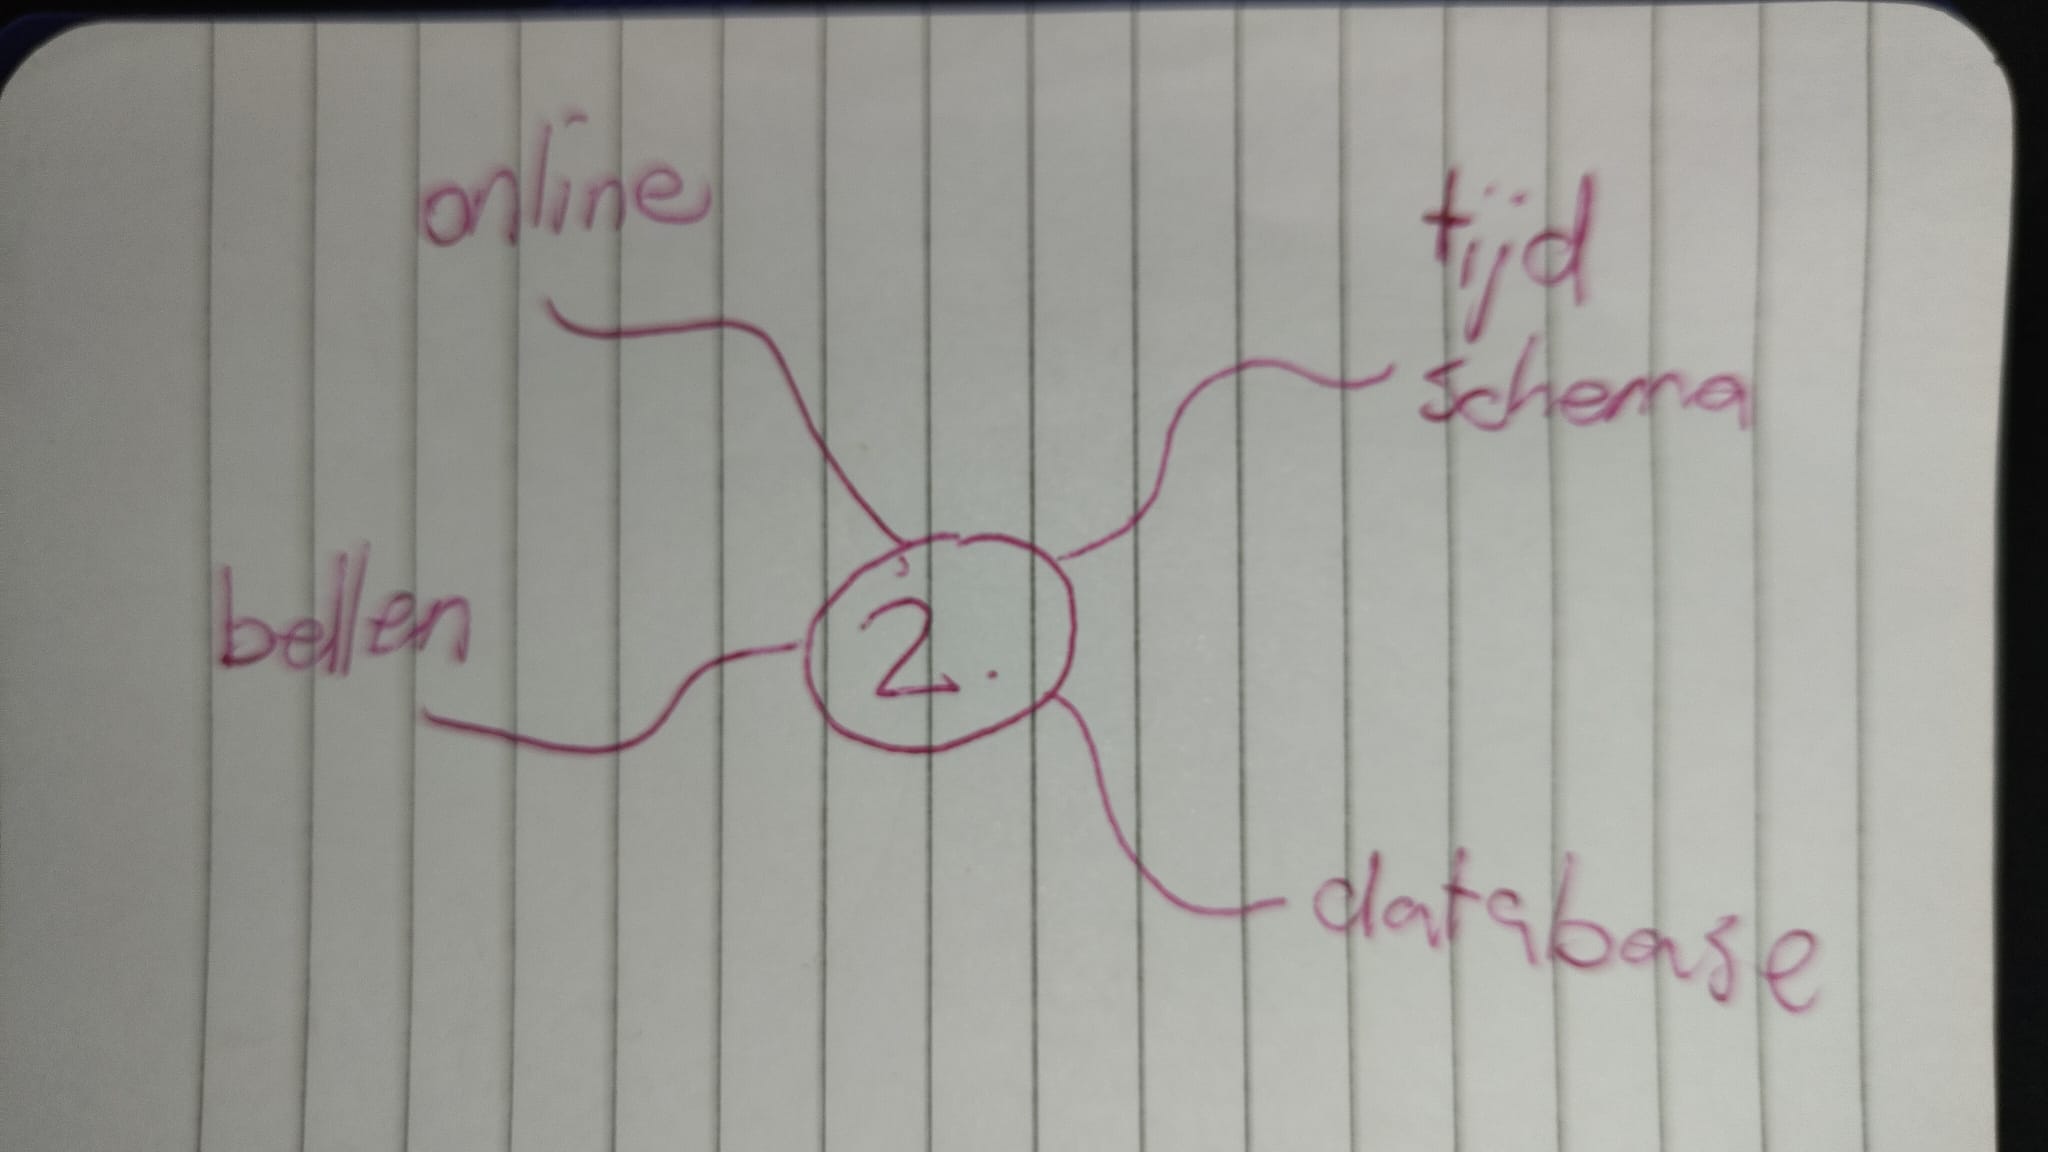 online
tijd
schema
bellen
2.
database